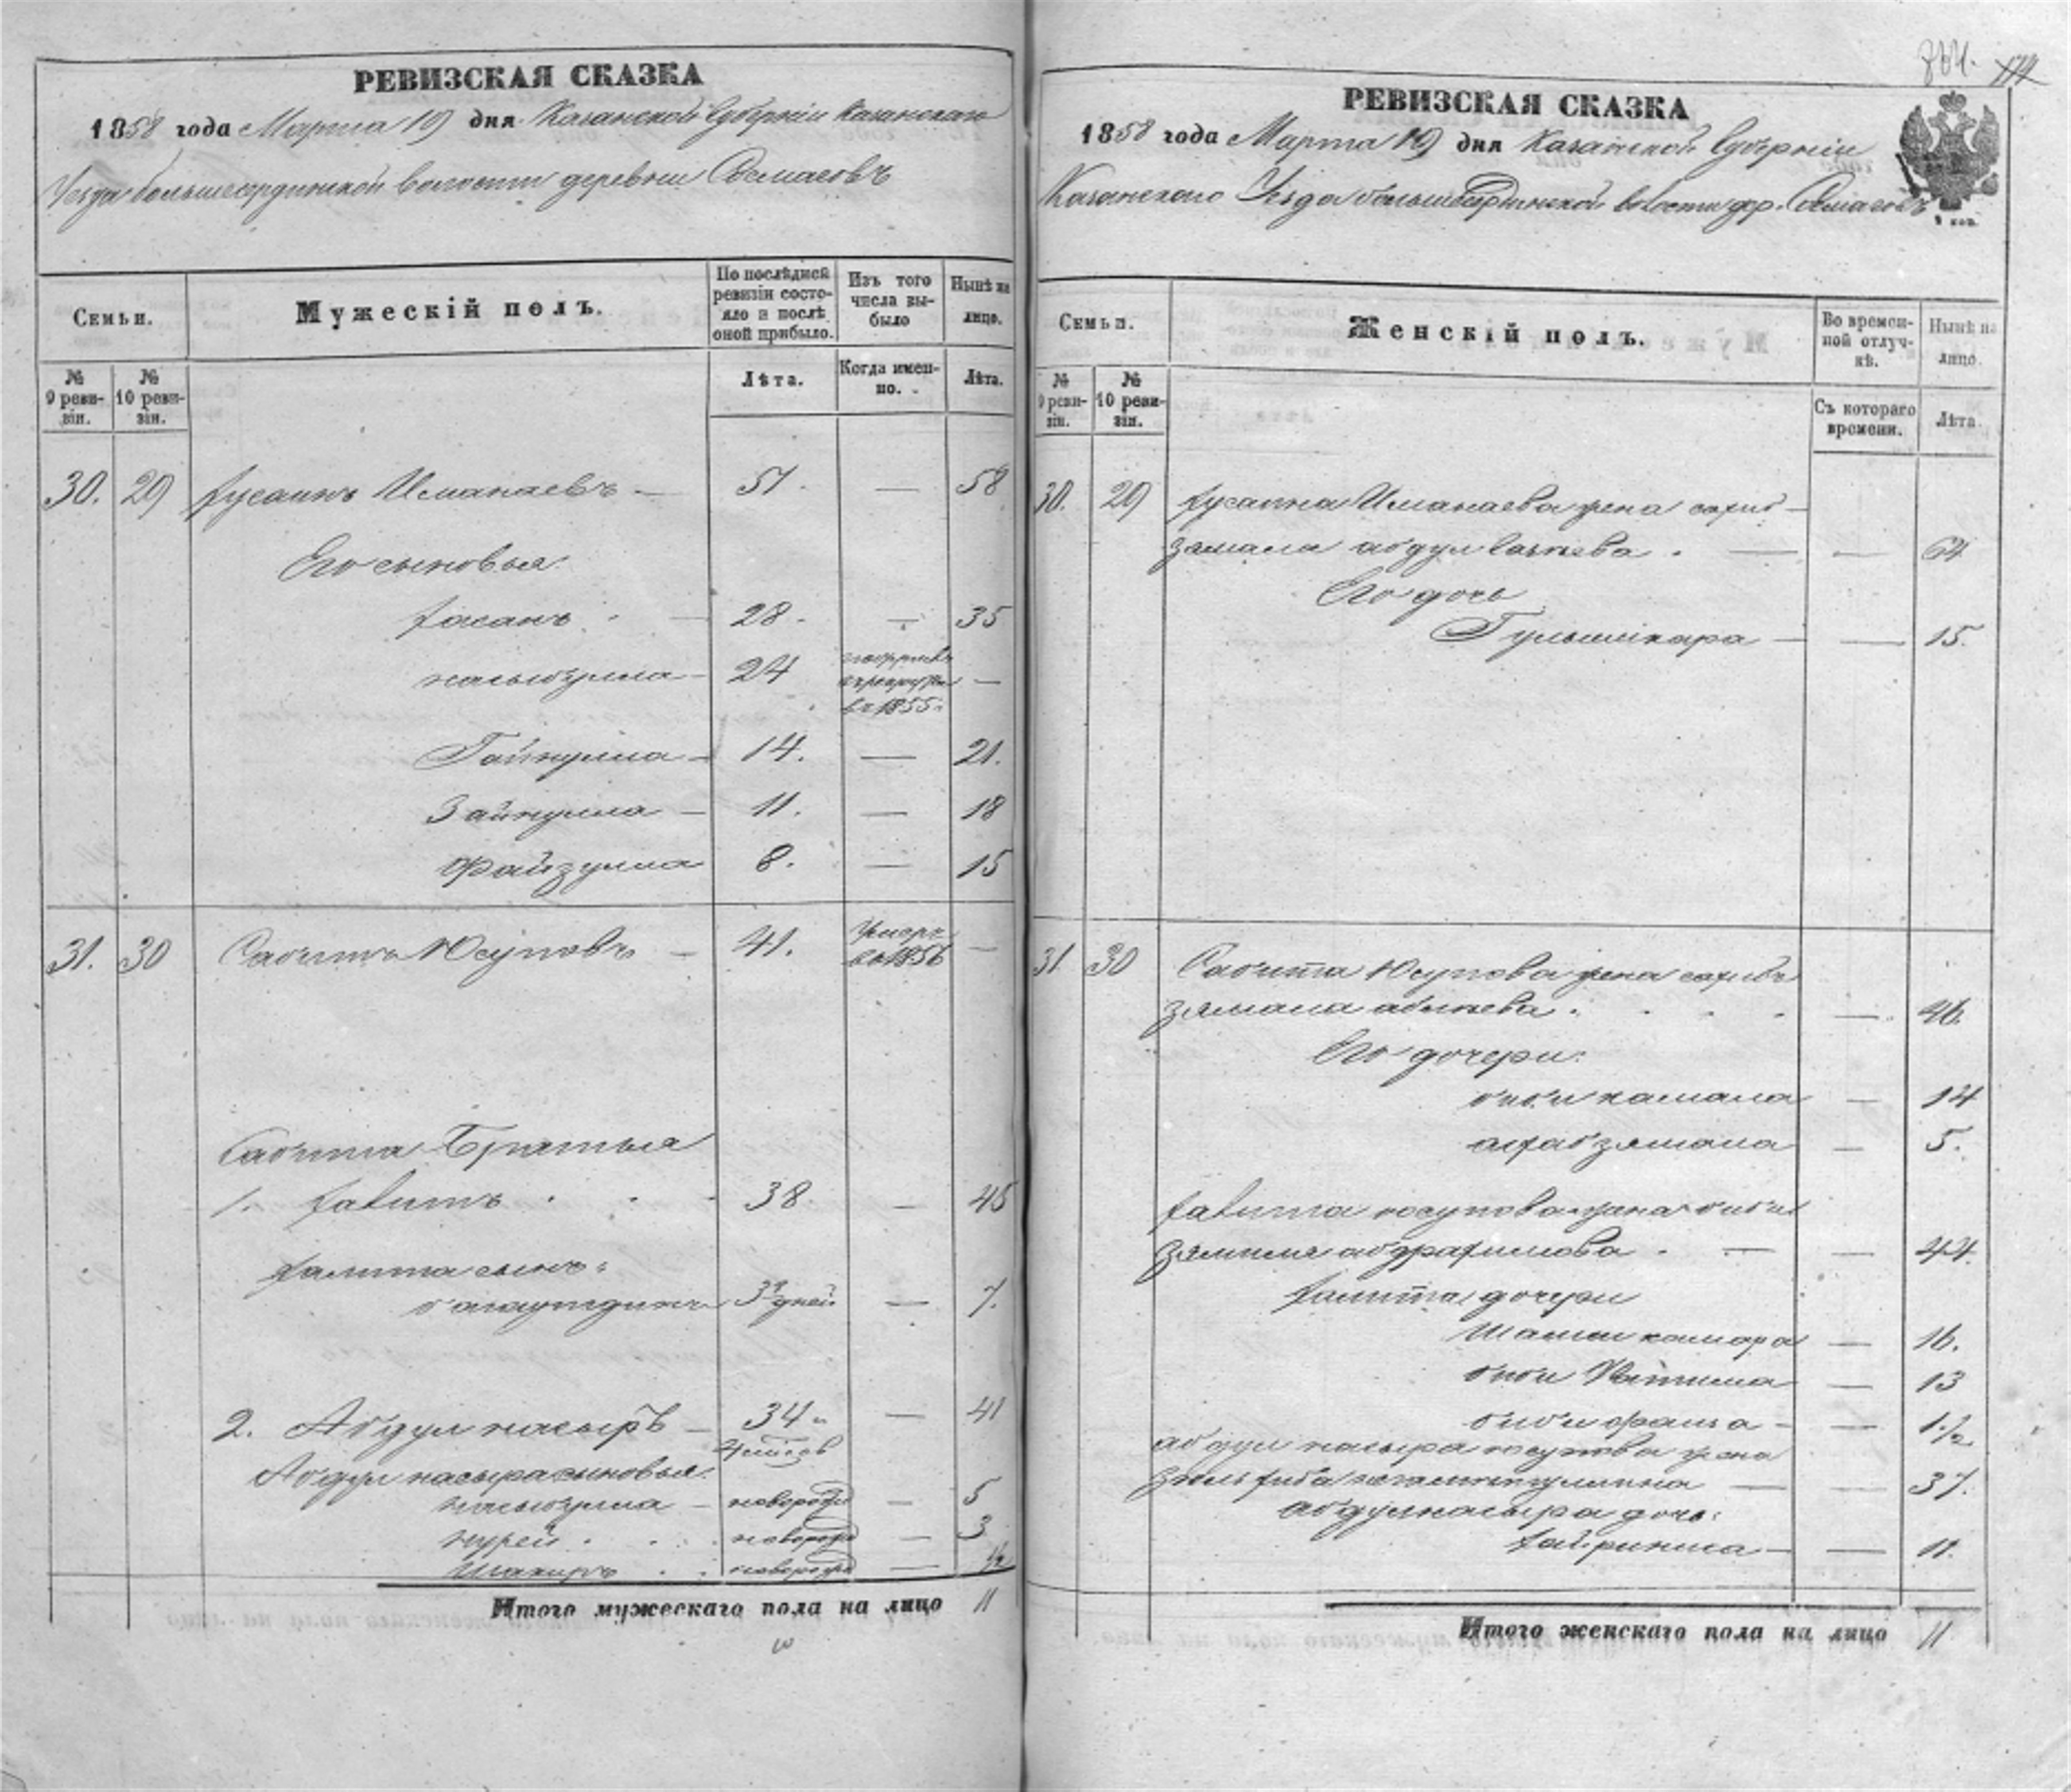 РЕВИЗСКАЯ СКАЗКА
1858 года Марта 19 дня Казанской Губерніи Казанскаго
Уезда большесардинской волости деревни
Семьи.
Мужескій полъ.
По послѣдней ревизіи состояло и послѣ оной прибыло.
Изъ того числа выбыло
Нынѣ на лицо.
№ 9 ревизіи.
№ 10 ревизіи.
Лѣта.
Когда именно.
Лѣта.
30. 29 Хусаинъ Иманаевъ — 51. — 58
Его сыновья
Хасанъ — 28. — 35
24 въ 1855 —
Гайнулла — 14. — 21.
Зайнулла — 11. — 18
Файзулла 8. — 15
31. 30 Сабитъ Юсуповъ — 41. Умеръ въ 1856 —
Сабита Братья
1. Хавитъ 38. — 45
сынъ
дней — 7.
2. Абдулнасыръ — 34 — 41
Абдулнасыра сыновья
новорожд — 5
нурей новорожд — 3
Шакиръ новорожд — 1/2
Итого мужескаго пола на лицо 11
РЕВИЗСКАЯ СКАЗКА
1858 года Марта 19 дня Казанской Губерніи
Казанскаго Уезда большесардинской волости дер.
4 коп.
Семьи.
Женскій полъ.
Во временной отлучкѣ.
Нынѣ на лицо.
№ 9 ревизіи.
№ 10 ревизіи.
Съ котораго времени.
Лѣта.
30. 29 Хусаина Иманаева жена сахиб
зямала абдул — — 64
Его дочь
— — 15.
31 30 Сабита Юсупова жена сахибъ
зямала — 46.
Его дочери:
биби камала — 14
зямала — 5.
Хавита юсупова жена биби
— — 44.
дочери
Шамси камара — 16.
биби Фатима — 13
биби — — 1 1/2
абдул насыра юсупова жена
— — 37.
абдулнасыра дочь:
Хайриниса — — 11.
Итого женскаго пола на лицо 11